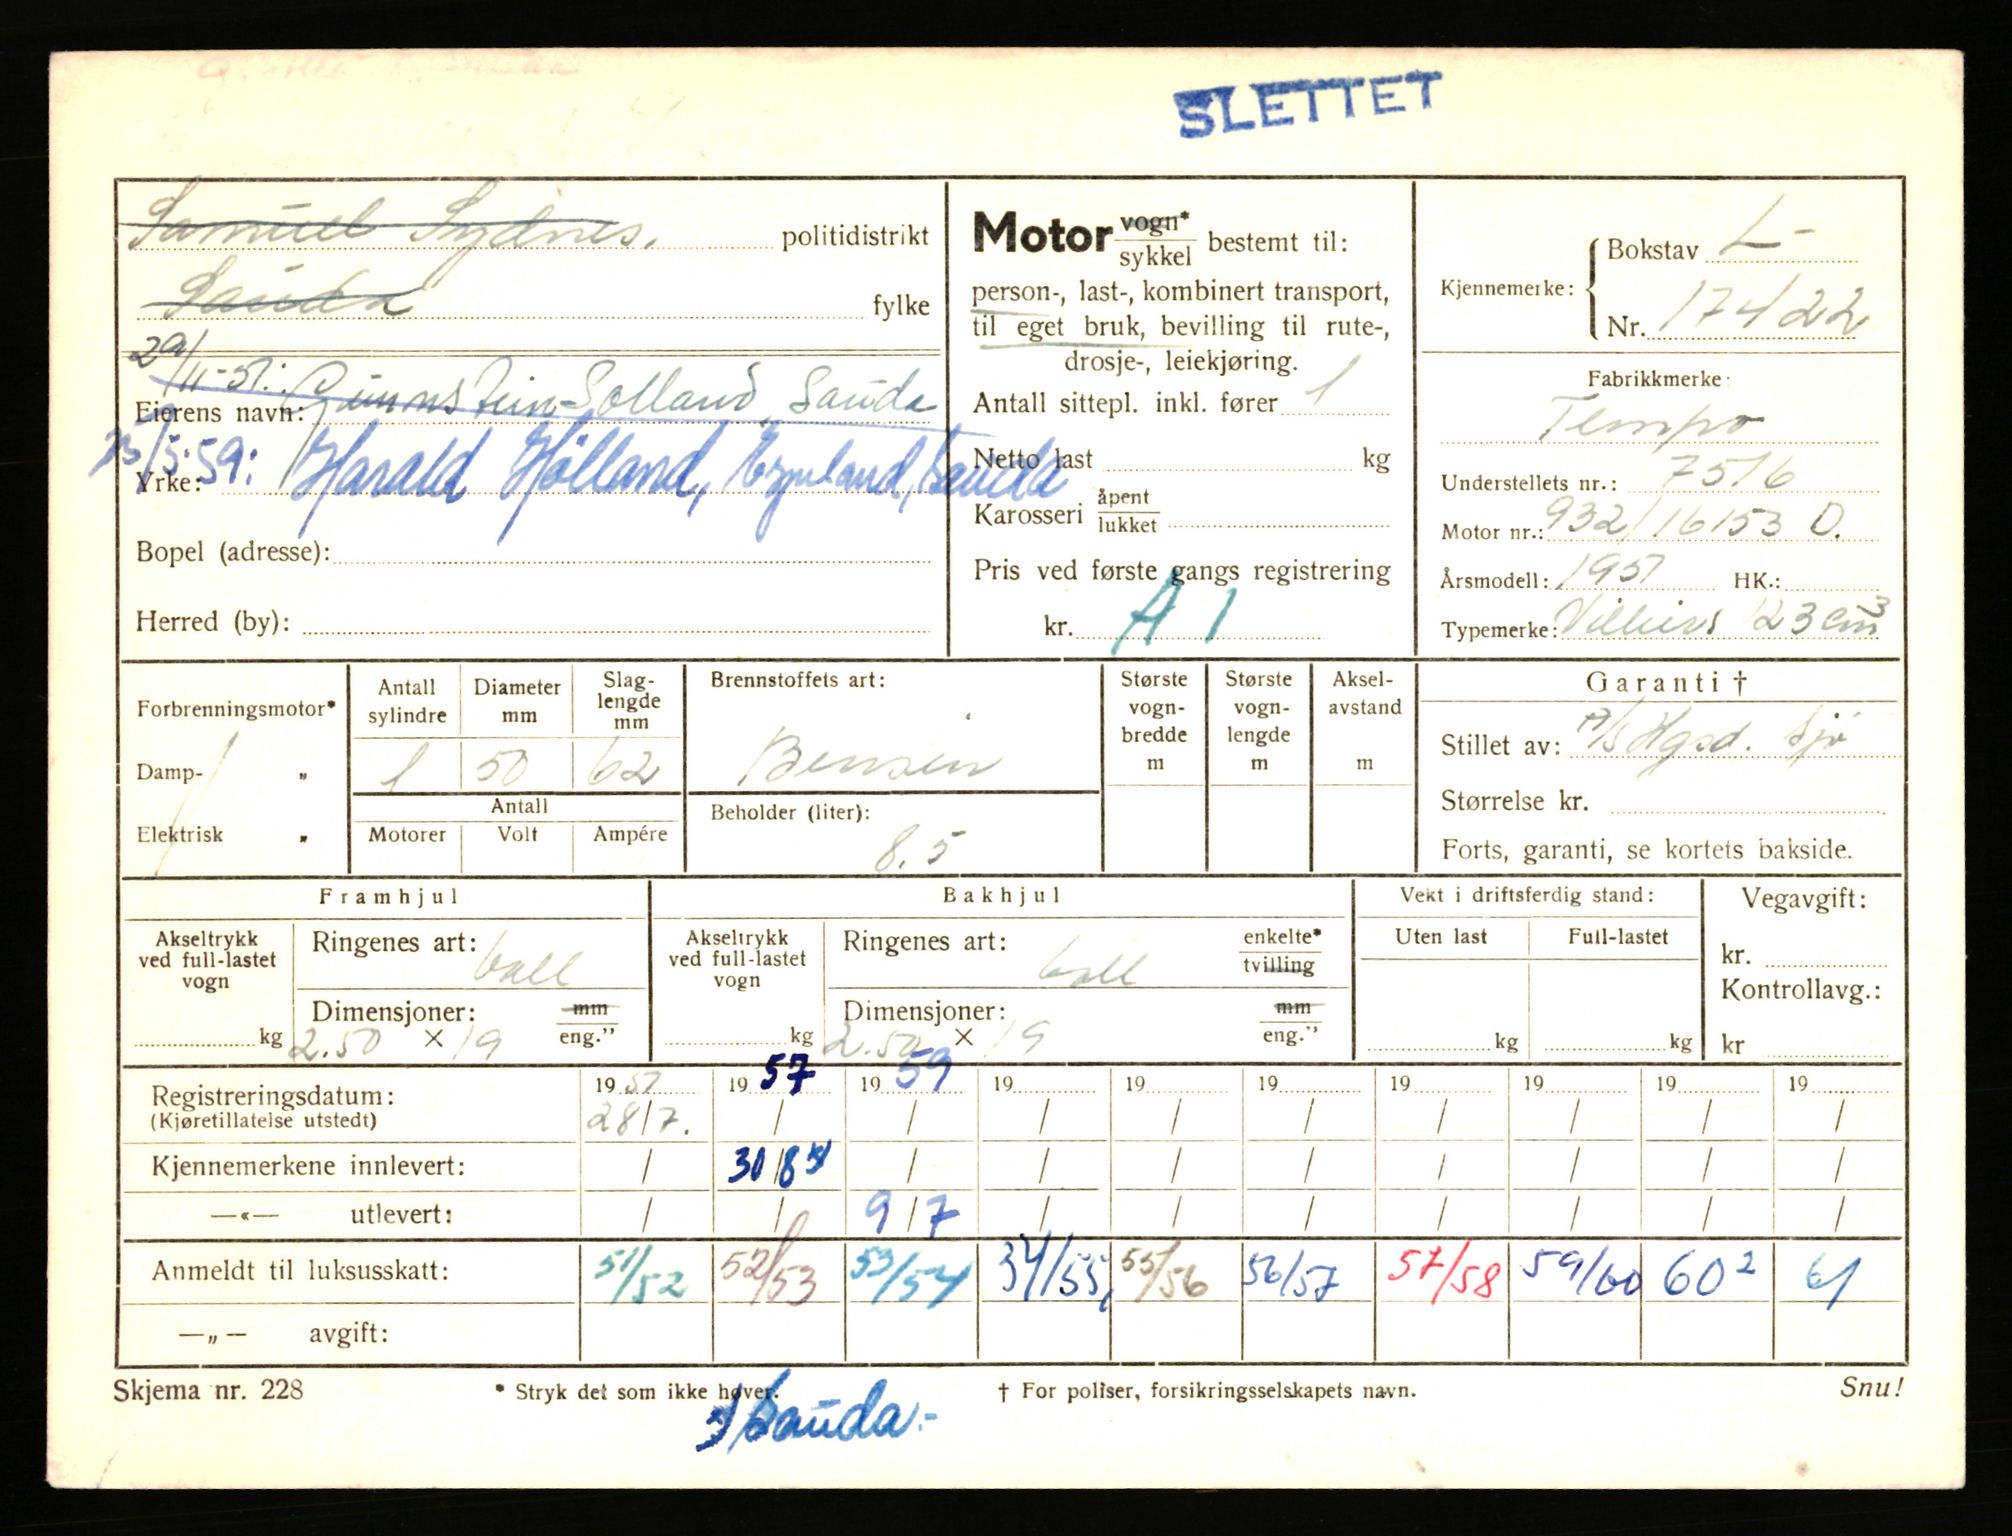 SLETTET
Samuel Sydnes. politidistrikt
Sauda fylke
29/11-51: Gunnstein Solland, Sauda
Eierens navn:
25/5.59: Harald Hölland, Sauda
Yrke:
Bopel (adresse):
Herred (by):
Motor vogn* sykkel bestemt til:
person-, last-, kombinert transport,
til eget bruk, bevilling til rute-,
drosje-, leiekjøring.
Antall sittepl. inkl. fører 1
Netto last kg
Karosseri åpent lukket
Pris ved første gangs registrering
kr. A 1
Kjennemerke: Bokstav L-
Nr. 17422
Fabrikkmerke:
Tempo
Understellets nr.: 7516
Motor nr.: 932/16153 D.
Årsmodell: 1951 HK.:
Typemerke: Villiers 123 cm3
Forbrenningsmotor*
Damp- „
Elektrisk „
Antall sylindre
Diameter mm
Slag-lengde mm
1 50 62
Antall
Motorer Volt Ampére
Brennstoffets art:
Bensin
Beholder (liter):
8.5
Største vogn-bredde m
Største vogn-lengde m
Aksel-avstand m
Garanti †
Stillet av: A/S Hgsd. Sjø
Størrelse kr.
Forts, garanti, se kortets bakside.
Framhjul
Akseltrykk ved full-lastet vogn
kg
Ringenes art: ball
Dimensjoner: mm eng."
2.50 × 19
Bakhjul
Akseltrykk ved full-lastet vogn
kg
Ringenes art: ball enkelte* tvilling
Dimensjoner: mm eng."
2.50 × 19
Vekt i driftsferdig stand:
Uten last Full-lastet
kg kg
Vegavgift:
kr.
Kontrollavg.:
kr
Registreringsdatum: 19 51 19 57 19 59 19 19 19 19 19 19 19
(Kjøretillatelse utstedt) 28/7. / / / / / / / / /
Kjennemerkene innlevert: / 30/8 / / / / / / / /
—«— utlevert: / / 9/7 / / / / / / /
Anmeldt til luksusskatt: 51/52 52/53 53/54 34/55, 55/56 56/57 57/58 59/60 60² 61
—„— avgift:
Skjema nr. 228 * Stryk det som ikke høver. † For poliser, forsikringsselskapets navn. Snu!
Sauda.-